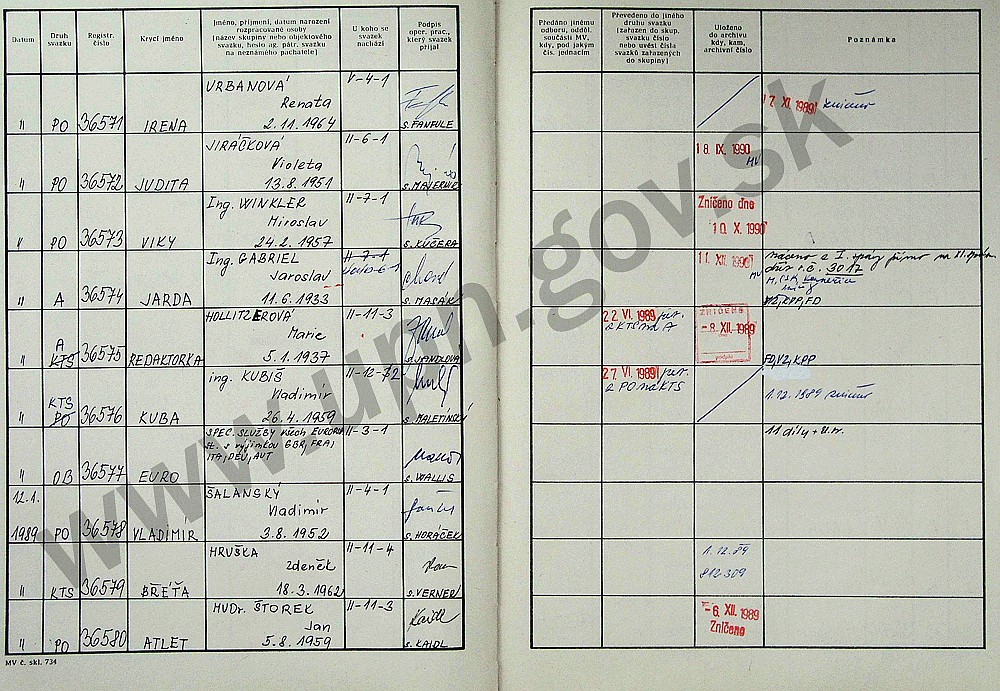 Datum
Druh svazku
Registr. číslo
Krycí jméno
Jméno, příjmení, datum narození
rozpracované osoby
(název skupiny nebo objektového
svazku, heslo ag. pátr. svazku
na neznámého pachatele)
U koho se
svazek
nachází
Podpis
oper. prac.,
který svazek
přijal
Předáno jinému
odboru, odděl.
součásti MV,
kdy, pod jakým
čís. jednacím
Převedeno do jiného
druhu svazku
(zařazen do skup.
svazku číslo
nebo uvést čísla
svazků zařazených
do skupiny)
Uloženo
do archivu
kdy, kam,
archivní číslo
Poznámka
URBANOVÁ V-4-1
Renata
" PO 36571 IRENA 2.11.1964 s. FANFULE
17. XI. 1989
JIRÁČKOVÁ II-6-1
Violeta
" PO 36572 JUDITA 13.8.1951
18. IX. 1990
MV
Ing. WINKLER II-7-1
Miroslav
PO 36573 VIKY 24.2.1957 s. KUČERA
Zničeno dne
10. X. 1990
Ing. GABRIEL II-7-1
Jaroslav
" A 36574 JARDA 11.6.1933 s. MASÁK
11. XII. 1990
MV
3017
VZ, KPP, FD
HOLLITZEROVÁ II-11-3
Marie
A
KTS 36575 REDAKTORKA 5.1.1937 s. JANDLOVÁ
22. VI. 1989
z KTS na A
ZNIČENO
-8. XII. 1989
podpis
FD, VZ, KPP
ing. KUBIŠ II-12-32
Vladimír
KTS
" PO 36576 KUBA 26.4.1959 s. MALETINSKÝ
27. VI. 1989
z PO na KTS
1.12.1989
SPEC. SLUŽBY všech EUROP. II-3-1
st. s výjimkou GBR, FRA,
ITA, DEU, AUT
" OB 36577 EURO s. WALLIS
11 díly +
12.1. ŠALANSKÝ II-4-1
Vladimír
1989 PO 36578 VLADIMÍR 3.8.1952 s. HORÁČEK
HRUŠKA II-11-4
Zdeněk
" KTS 36579 BŘÉŤA 18.3.1962 s. VERNER
1.12.89
812309
MUDr. ŠTOREK II-11-3
Jan
" PO 36580 ATLET 5.8.1959 s. KAIDL
-6. XII. 1989
Zničeno
MV č. skl. 734
www.upn.gov.sk